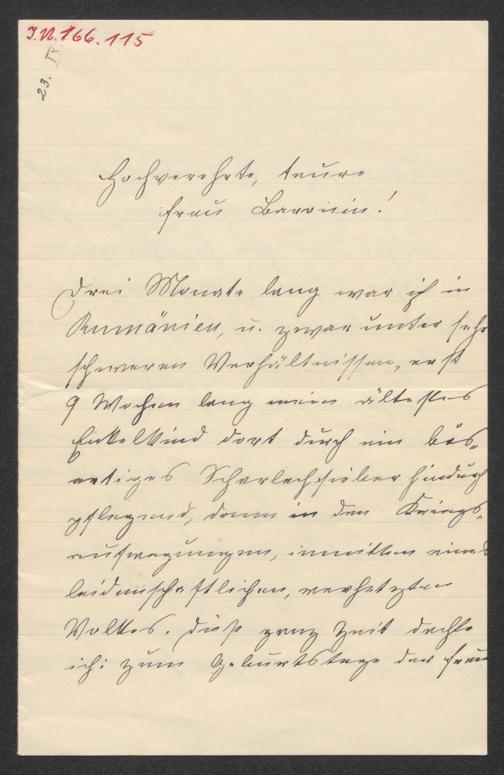 J.N. 166.115
23.
Hochverehrte, teure
Frau Baronin!
Drei Monate lang war ich in
Rumänien, u. zwar unter sehr
schweren Verhältnissen, erst
9 Wochen lang mein ältestes
Enkelkind dort durch ein bös-
artiges Scharlachfieber hindurch
pflegend, dann in den Kriegs-
aufregungen, inmitten eines
leidenschaftlichen, verhetzten
Volkes. Diese ganze Zeit dachte
ich: zum Geburtstage der Frau